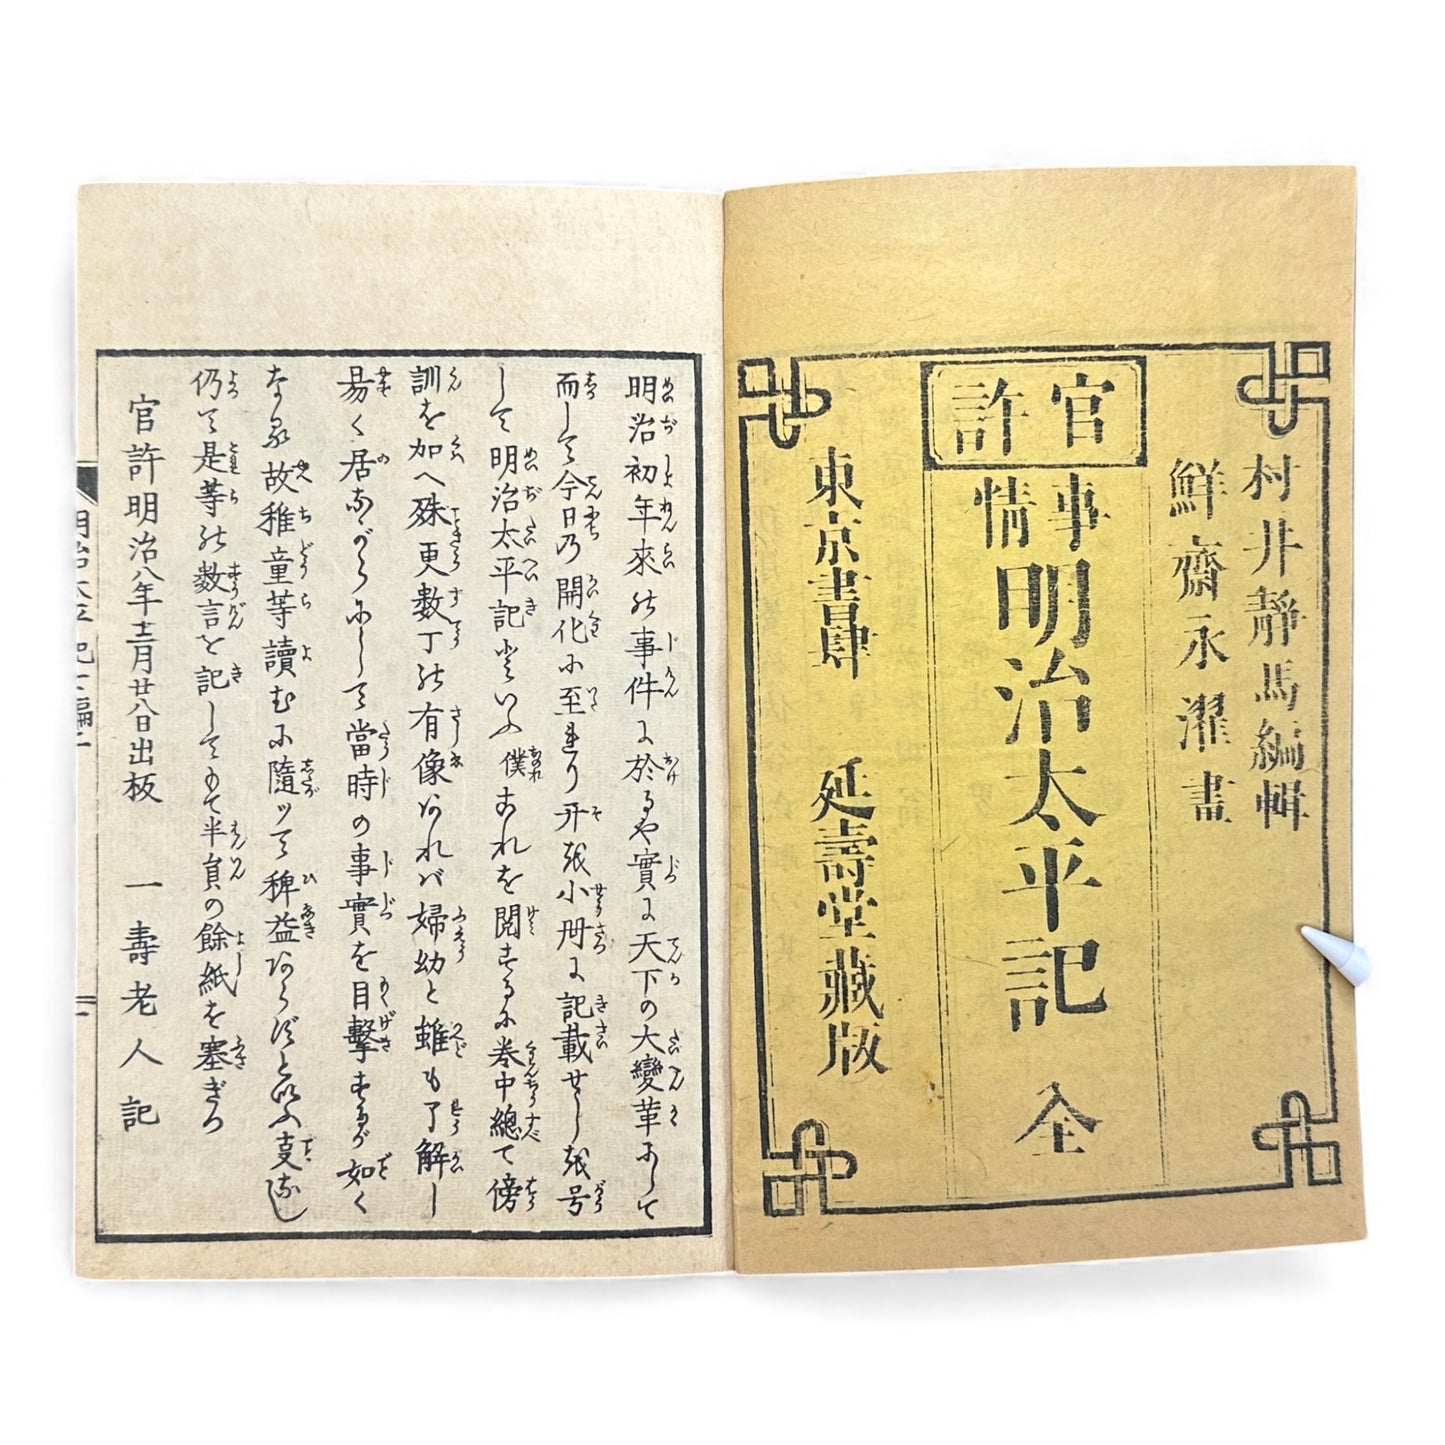 村井靜馬編輯
鮮齋永濯畫
官許
事情
明治太平記 全
東京書肆 延壽堂藏版
明治初年來の事件に於るや實に天下の大變革にして
而して今日乃開化に至れり 开を小冊に記載せしを号
して明治太平記といふ 僕これを閲するに卷中總て傍
訓を加へ殊更數丁の有像あれバ婦幼と雖も了解し
易く居ながらにして當時の事實を目擊するが如く
なる故稚童等讀むに隨ツて稗益あらずと以ふ支なし
仍て是等の數言を記してもて半頁の餘紙を塞ぎつ
官許明治八年十二月廿八日出板 一壽老人記